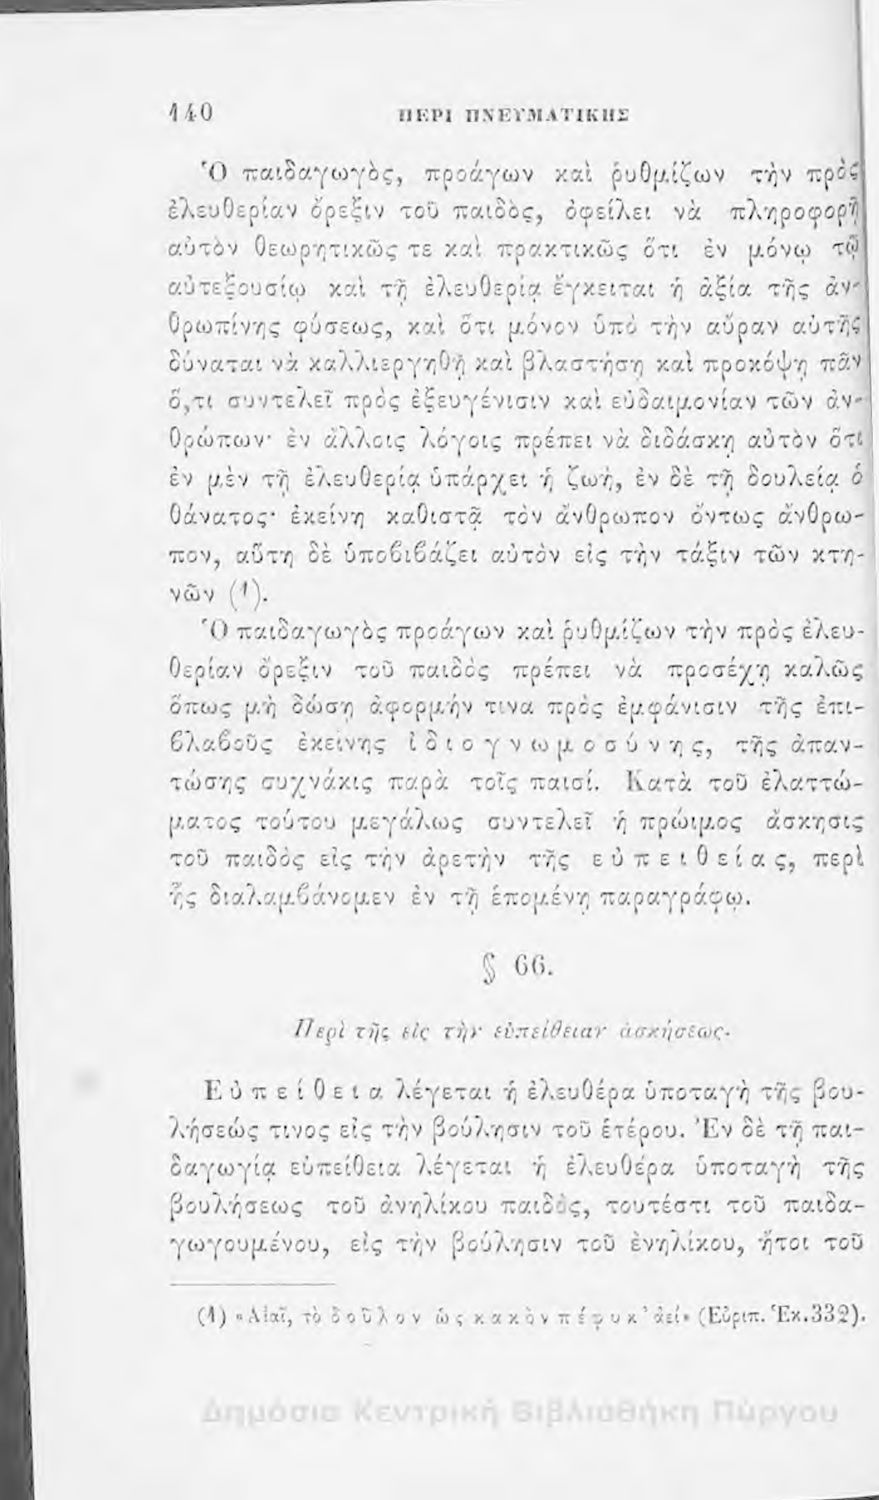 140 ΠΕΡΙ ΠΝΕΥΜΑΤΙΚΗΣ
Ὁ παιδαγωγὸς, προάγων καὶ ῥυθμίζων τὴν πρὸς
ἐλευθερίαν ὄρεξιν τοῦ παιδὸς, ὀφείλει νὰ πληροφορῇ
αὐτὸν θεωρητικῶς τε καὶ πρακτικῶς ὅτι ἐν μόνῳ τῷ
αὐτεξουσίῳ καὶ τῇ ἐλευθερίᾳ ἔγκειται ἡ ἀξία τῆς ἀν-
θρωπίνης φύσεως, καὶ ὅτι μόνον ὑπὸ τὴν αὔραν αὐτῆς
δύναται νὰ καλλιεργηθῇ καὶ βλαστήσῃ καὶ προκόψῃ πᾶν
ὅ,τι συντελεῖ πρὸς ἐξευγένισιν καὶ εὐδαιμονίαν τῶν ἀν-
θρώπων· ἐν ἄλλοις λόγοις πρέπει νὰ διδάσκῃ αὐτὸν ὅτι
ἐν μὲν τῇ ἐλευθερίᾳ ὑπάρχει ἡ ζωὴ, ἐν δὲ τῇ δουλείᾳ ὁ
θάνατος· ἐκείνη καθιστᾷ τὸν ἄνθρωπον ὄντως ἄνθρω-
πον, αὕτη δὲ ὑποβιβάζει αὐτὸν εἰς τὴν τάξιν τῶν κτη-
νῶν (1).
Ὁ παιδαγωγὸς προάγων καὶ ῥυθμίζων τὴν πρὸς ἐλευ-
θερίαν ὄρεξιν τοῦ παιδὸς πρέπει νὰ προσέχῃ καλῶς
ὅπως μὴ δώσῃ ἀφορμήν τινα πρὸς ἐμφάνισιν τῆς ἐπι-
βλαβοῦς ἐκείνης ἰδιογνωμοσύνης, τῆς ἀπαν-
τώσης συχνάκις παρὰ τοῖς παισί. Κατὰ τοῦ ἐλαττώ-
ματος τούτου μεγάλως συντελεῖ ἡ πρώιμος ἄσκησις
τοῦ παιδὸς εἰς τὴν ἀρετὴν τῆς εὐπειθείας, περὶ
ἧς διαλαμβάνομεν ἐν τῇ ἑπομένῃ παραγράφῳ.
§ 66.
Περὶ τῆς εἰς τὴν εὐπείθειαν ἀσκήσεως.
Εὐπείθεια λέγεται ἡ ἐλευθέρα ὑποταγὴ τῆς βου-
λήσεώς τινος εἰς τὴν βούλησιν τοῦ ἑτέρου. Ἐν δὲ τῇ παι-
δαγωγίᾳ εὐπείθεια λέγεται ἡ ἐλευθέρα ὑποταγὴ τῆς
βουλήσεως τοῦ ἀνηλίκου παιδὸς, τουτέστι τοῦ παιδα-
γωγουμένου, εἰς τὴν βούλησιν τοῦ ἐνηλίκου, ἤτοι τοῦ
(1) «Αἰαῖ, τὸ δοῦλον ὡς κακὸν πέφυκ’ ἀεί» (Εὐριπ. Ἑκ.332).
Δημόσια Κεντρική Βιβλιοθήκη Πύργου